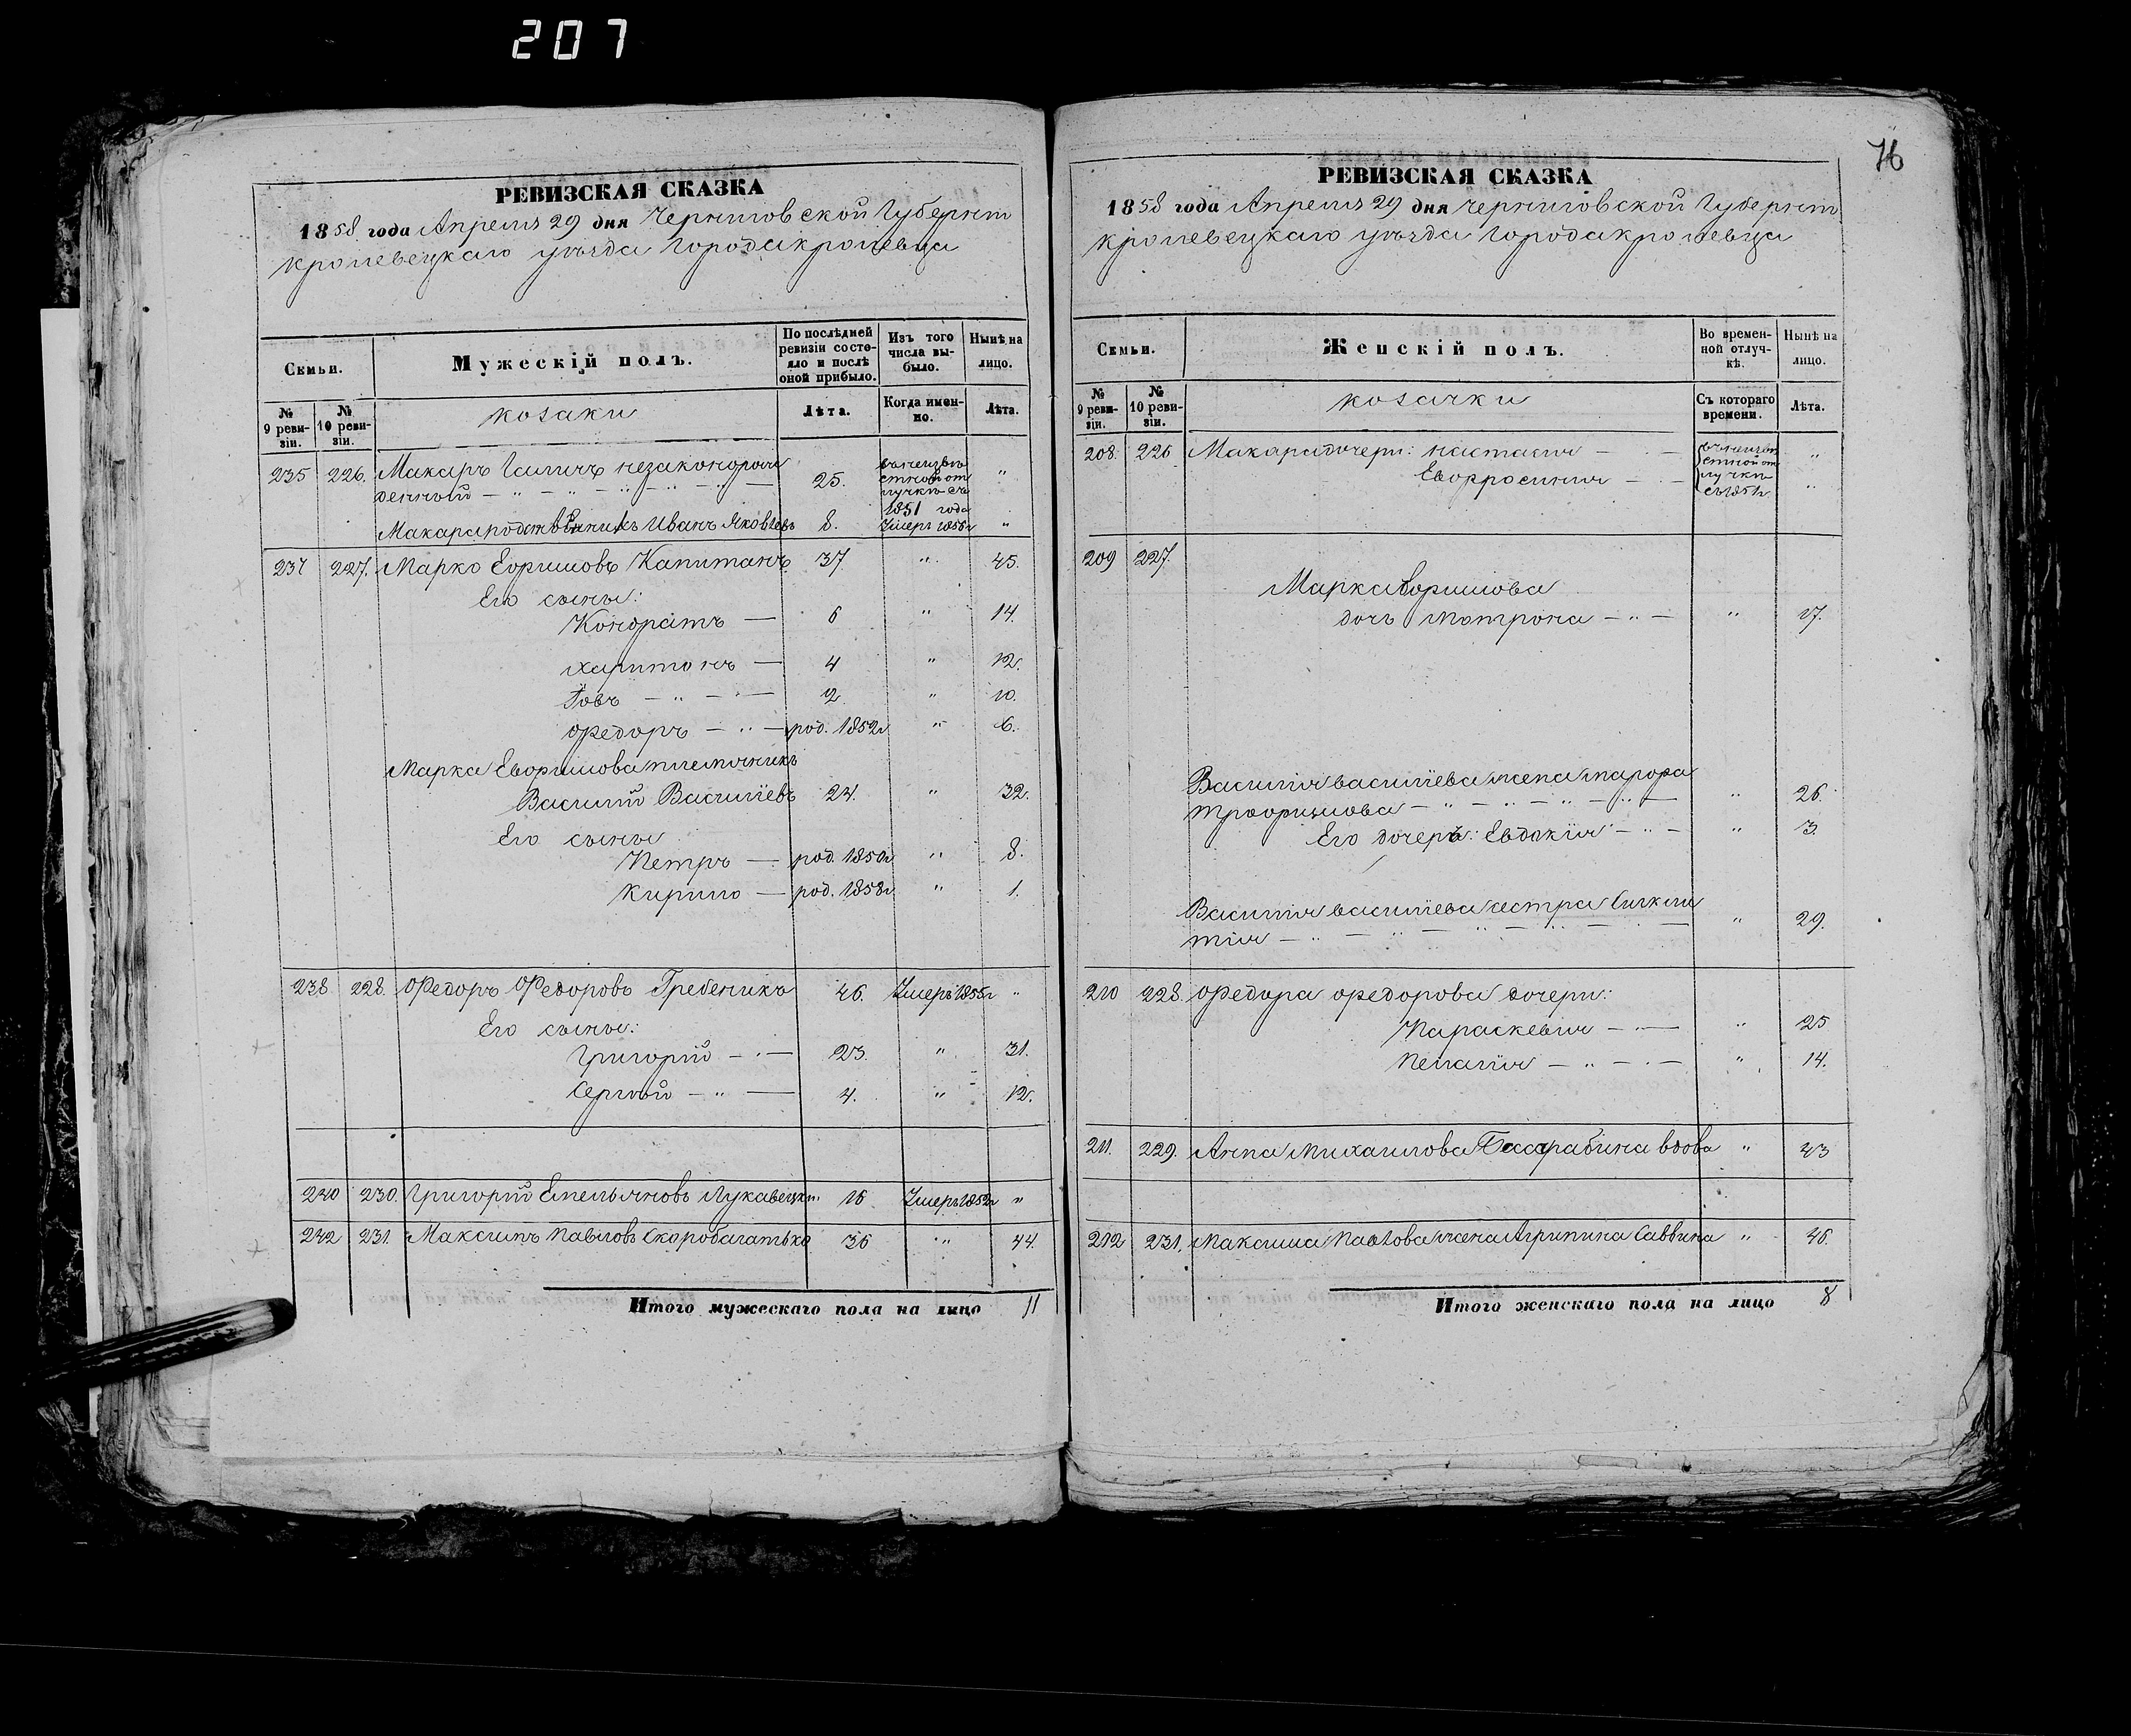 207
РЕВИЗСКАЯ СКАЗКА
1858 года Апреля 29 дня Черниговской Губернии
Кролевецкаго уѣзда города Кролевца
Семьи.
Мужескій полъ.
По послѣдней ревизіи состояло и послѣ оной прибыло.
Изъ того числа выбыло.
Нынѣ на лицо.
№ 9 ревизіи.
№ 10 ревизіи.
козаки
Лѣта.
Когда именно.
Лѣта.
235 226. Макаръ незаконорож
денный — " — " — " — " — 25. въ неизвѣстной отлучкѣ съ 1851 года "
Макара родственникъ Иванъ Яковлевъ 8. Умеръ 1855г "
237 227. Марко Ефимовъ Капитанъ 37 " 45.
Его сыны:
Кондратъ — 6 " 14.
Харитонъ — 4 " 12.
Іовъ — " — 2. " 10.
Федоръ — " — род. 1852г " 6.
Марка Ефимова племянникъ
Василій Васильевъ 24. " 32.
Его сыны
Петръ — род. 1850г " 8.
Кирило — род. 1858г " 1.
238 228. Федоръ Федоровъ Гребеникъ 46. Умеръ 1855г "
Его сыны:
Григорій — " — 23. " 31.
Сергѣй — " — 4. " 12.
240 230. Григорій Емельяновъ 16 Умеръ 1852г "
242 231. Максимъ Павловъ Скоробагатько 36 " 44.
Итого мужескаго пола на лицо 11
76
РЕВИЗСКАЯ СКАЗКА
1858 года Апреля 29 дня Черниговской Губернии
Кролевецкаго уѣзда города Кролевца
Семьи.
Женскій полъ.
Во временной отлучкѣ.
Нынѣ на лицо.
№ 9 ревизіи.
№ 10 ревизіи.
козачки
Съ котораго времени.
Лѣта.
208. 226 Макара дочери: Настасия — въ неизвѣстной отлучкѣ съ 1851г "
Евфросиния — "
209 227.
Марка Ефимова
дочь Матрона — " — " 17.
Василия Васильева жена
Трофимова — " — " — " — " 26.
Его дочерь: Евдокія — " — " 3.
Василия Васильева сестра
— " — " — " — " 29.
210 228. Федора Федорова дочери:
Параскевия — " — " 25
Пелагія — " — " 14.
211. 229. Анна Михаилова вдова " 43
212 231. Максима Павлова жена Агрипина Саввина " 46.
Итого женскаго пола на лицо 8